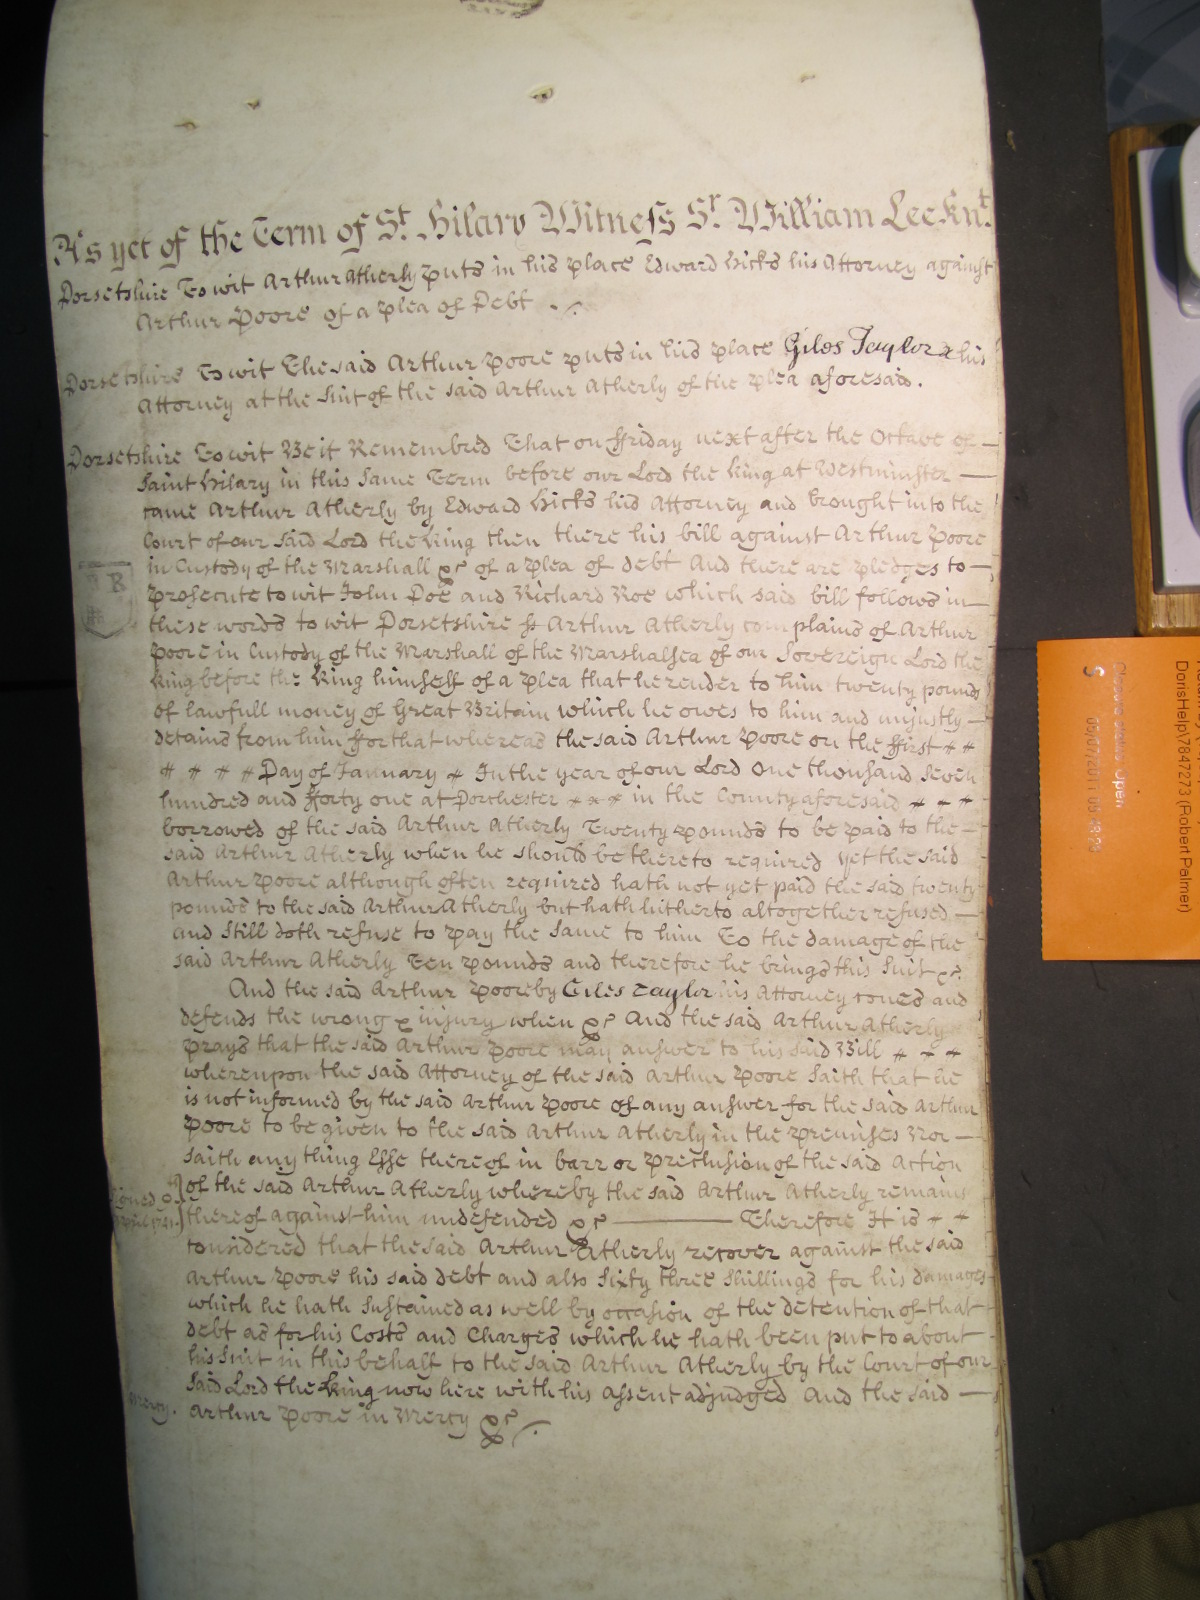 As yet of the Term of St. Hilary Witness Sr. William Lee Knt.
Dorsetshire To wit Arthur Atherly puts in his place Edward Hicks his Attorney against
Arthur Poore of a plea of Debt
Dorsetshire To wit The said Arthur Poore puts in his place Giles Taylor his
Attorney at the Suit of the said Arthur Atherly of the plea aforesaid.
Dorsetshire To wit Be it Remembred That on ffriday next after the Octave of
Saint Hilary in this same Term before our Lord the King at Westminster
came Arthur Atherly by Edward Hicks his Attorney and brought into the
Court of our said Lord the King then there his bill against Arthur Poore
in Custody of the Marshall &c of a plea of debt And there are pledges to
prosecute to wit John Doe and Richard Roe which said bill follows in
these words to wit Dorsetshire ss Arthur Atherly complains of Arthur
Poore in Custody of the Marshall of the Marshalsea of our Sovereign Lord the
King before the King himself of a plea that he render to him twenty pounds
of lawfull money of Great Britain which he owes to him and unjustly
detains from him ffor that whereas the said Arthur Poore on the ffirst
Day of January In the year of our Lord One thousand Seven
hundred and fforty one at Dorchester in the County aforesaid
borrowed of the said Arthur Atherly Twenty pounds to be paid to the
said Arthur Atherly when he should be thereto required yet the said
Arthur Poore although often required hath not yet paid the said twenty
pounds to the said Arthur Atherly but hath hitherto altogether refused
and still doth refuse to pay the same to him To the damage of the
said Arthur Atherly Ten pounds and therefore he brings this Suit &c.
And the said Arthur Poore by Giles Taylor his Attorney comes and
defends the wrong & injury when &c And the said Arthur Atherly
prays that the said Arthur Poore may answer to his said Bill
whereupon the said Attorney of the said Arthur Poore Saith that he
is not informed by the said Arthur Poore of any answer for the said Arthur
Poore to be given to the said Arthur Atherly in the premises Nor
saith any thing Else thereof in barr or preclusion of the said Action
of the said Arthur Atherly whereby the said Arthur Atherly remains
Signed
1741
thereof against him undefended &c Therefore It is
considered that the said Arthur Atherly recover against the said
Arthur Poore his said debt and also Sixty three Shillings for his damages
which he hath Sustained as well by occasion of the detention of that
debt as for his Costs and Charges which he hath been put to about
his Suit in this behalf to the said Arthur Atherly by the Court of our
said Lord the King now here with his assent adjudged And the said
Mercy.
Arthur Poore in Mercy &c
B
Please states Open
S 05/07/2011 09:48:29
DorisHelp\7847273 (Robert Palmer)